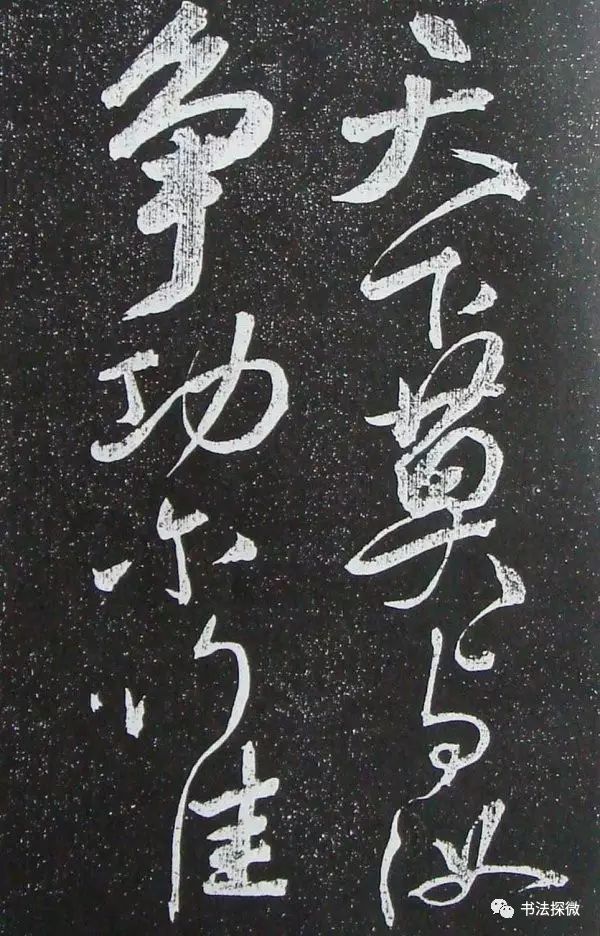 天下莫与汝
争功尔惟
书法探微